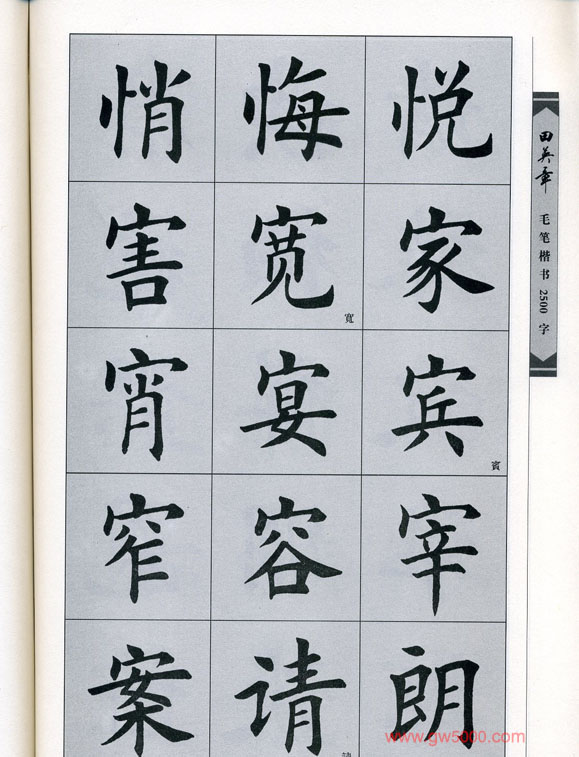 悄 悔 悦
害 宽 家
寬
宵 宴 宾
賓
窄 容 宰
案 请 朗
請
田英章 毛笔楷书 2500 字
www.gw5000.com